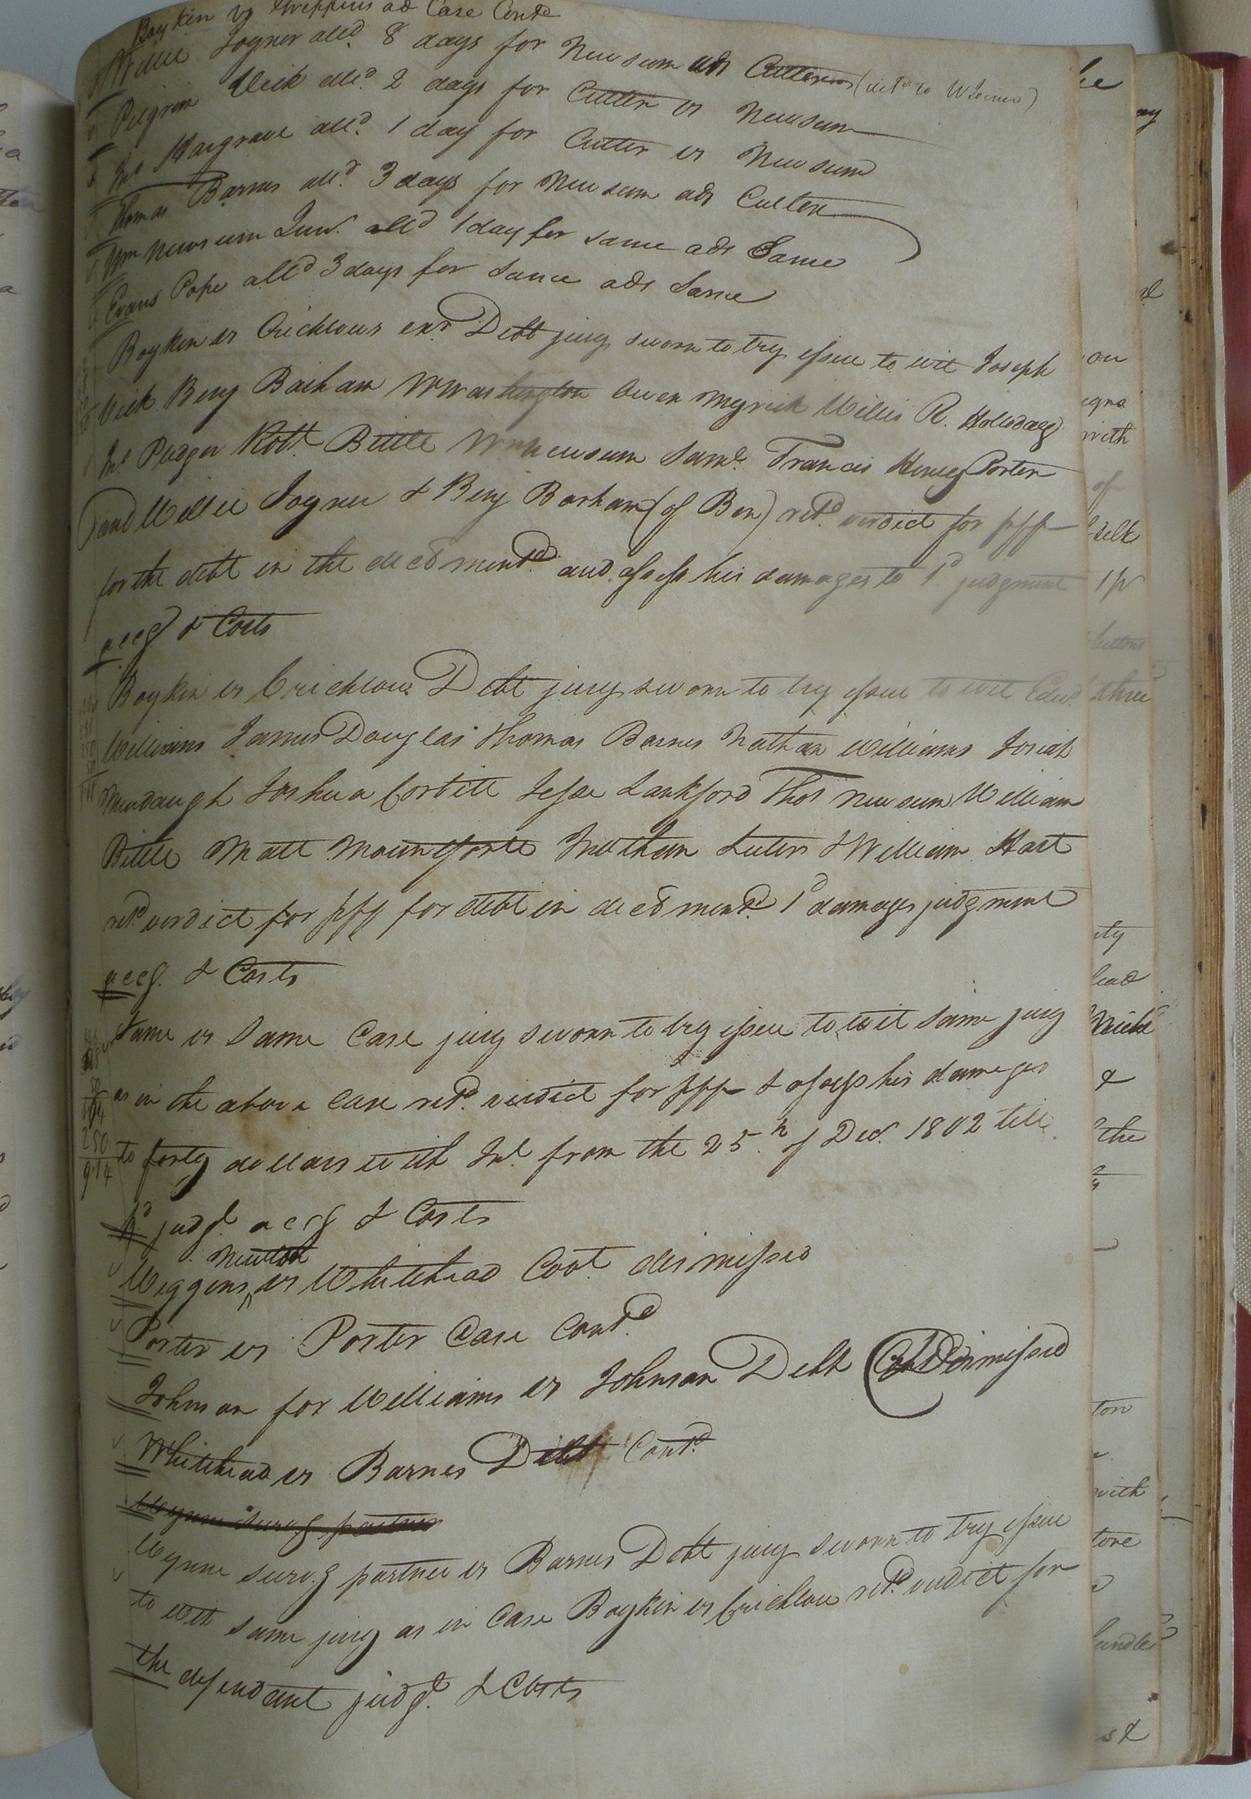 Boykin vs Griffins ad Case Contd
Willie Joyner alld. 8 days for Newsum ads Cutten (deld to W Joiner)
Pilgrim Vick alld. 2 days for Cutten vs Newsum
Jno. Hargrave alld. 1 day for Cutten vs Newsum
Thomas Barnes alld. 3 days for Newsum ads Cutten
Wm Newsum Junr. alld 1 day for same ads Same
Evans Pope alld 3 days for Same ads Same
Boykin vs Crichlows exr. Debt jury sworn to try issue to wit Joseph
Vick Benj Barham W Washington Owen Myrick Willis R. Holleday
Jno. Pledger Robt. Bittle Wm Newsum Saml. Francis Henry Porter
and Willie Joyner & Benj Barham (of Ben) retd. verdict for plff
for the debt in the decn mentd. and assess his damages to 1d judgment
accg & Costs
Boykin vs Crichlow Debt jury sworn to try issue to wit Edwd.
Williams James Douglas Thomas Barnes Nathan Williams Josiah
Mundaugh Joshua Corbitt Jesse Lankford Thos Newsum William
Bittle Matt Mountfortt Jnathan Luter & William Hart
retd. verdict for plff for debt in decn mentd. 1d damages judgment
accg. & Costs
Same vs Same Case jury sworn to try issue to wit same jury
as in the above case retd. verdict for plff & assess his damages
to forty dollars with Int. from the 25.h of Decr. 1802 till
pd judgt. accg & Costs
Newton
Wiggens ^ vs Whitehead Covt. dismissed
Porter vs Porter Case Contd.
Johnson for Williams vs Johnson Debt Dismissed
Whitehead vs Barnes Debt Contd.
Wynne survg partner
Wynne survg partner vs Barnes Debt jury sworn to try issue
to wit same jury as in Case Boykin vs Crichlow retd. verdict for
the defendant judgt. & Costs